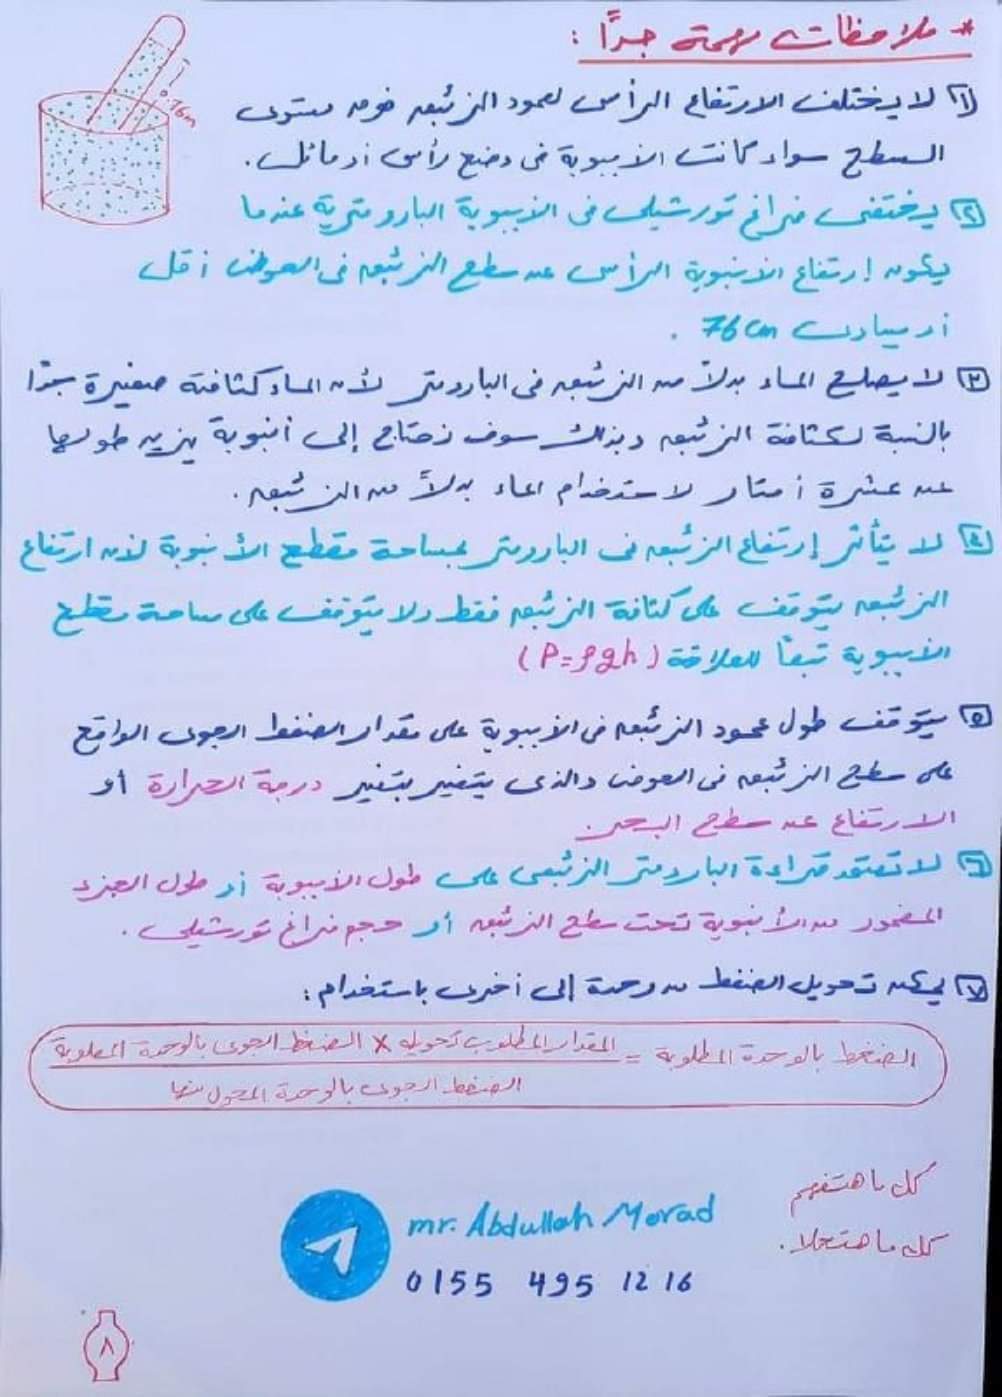 * ملاحظات مهمة جدًا :
0.76m
١ لا يختلف الارتفاع الرأسى لعمود الزئبق فوق مستوى
السطح سواء كانت الأنبوبة فى وضع رأسى أو مائل .
٢ يختفى فراغ تورشيلى فى الأنبوبة البارومترية عندما
يكون إرتفاع الأنبوبة الرأسى عن سطح الزئبق فى الحوض أقل
أو يساوى 76 cm .
٣ لا يصلح الماء بدلاً من الزئبق فى البارومتر لأن الماء كثافته صغيرة جدًا
بالنسبة لكثافة الزئبق وبذلك سوف نحتاج إلى أنبوبة يزيد طولها
عن عشرة أمتار لاستخدام الماء بدلاً من الزئبق .
٤ لا يتأثر إرتفاع الزئبق فى البارومتر بمساحة مقطع الأنبوبة لأن ارتفاع
الزئبق يتوقف على كثافة الزئبق فقط ولا يتوقف على مساحة مقطع
الأنبوبة تبعاً للعلاقة ( P = ρgh )
٥ يتوقف طول عمود الزئبق فى الأنبوبة على مقدار الضغط الجوى الواقع
على سطح الزئبق فى الحوض والذى يتغير بتغير درجة الحرارة أو
الارتفاع عن سطح البحر
٦ لا تعتمد قراءة البارومتر الزئبقى على طول الأنبوبة أو طول الجزء
المغمور من الأنبوبة تحت سطح الزئبق أو حجم فراغ تورشيلى .
٧ يمكن تحويل الضغط من وحدة إلى أخرى باستخدام :
الضغط بالوحدة المطلوبة = المقدار المطلوب تحويله × الضغط الجوى بالوحدة المطلوبة
الضغط الجوى بالوحدة المحول منها
كل ما هتفهم
كل ما هتحلا .
mr. Abdullah Morad
0155 495 12 16
٨